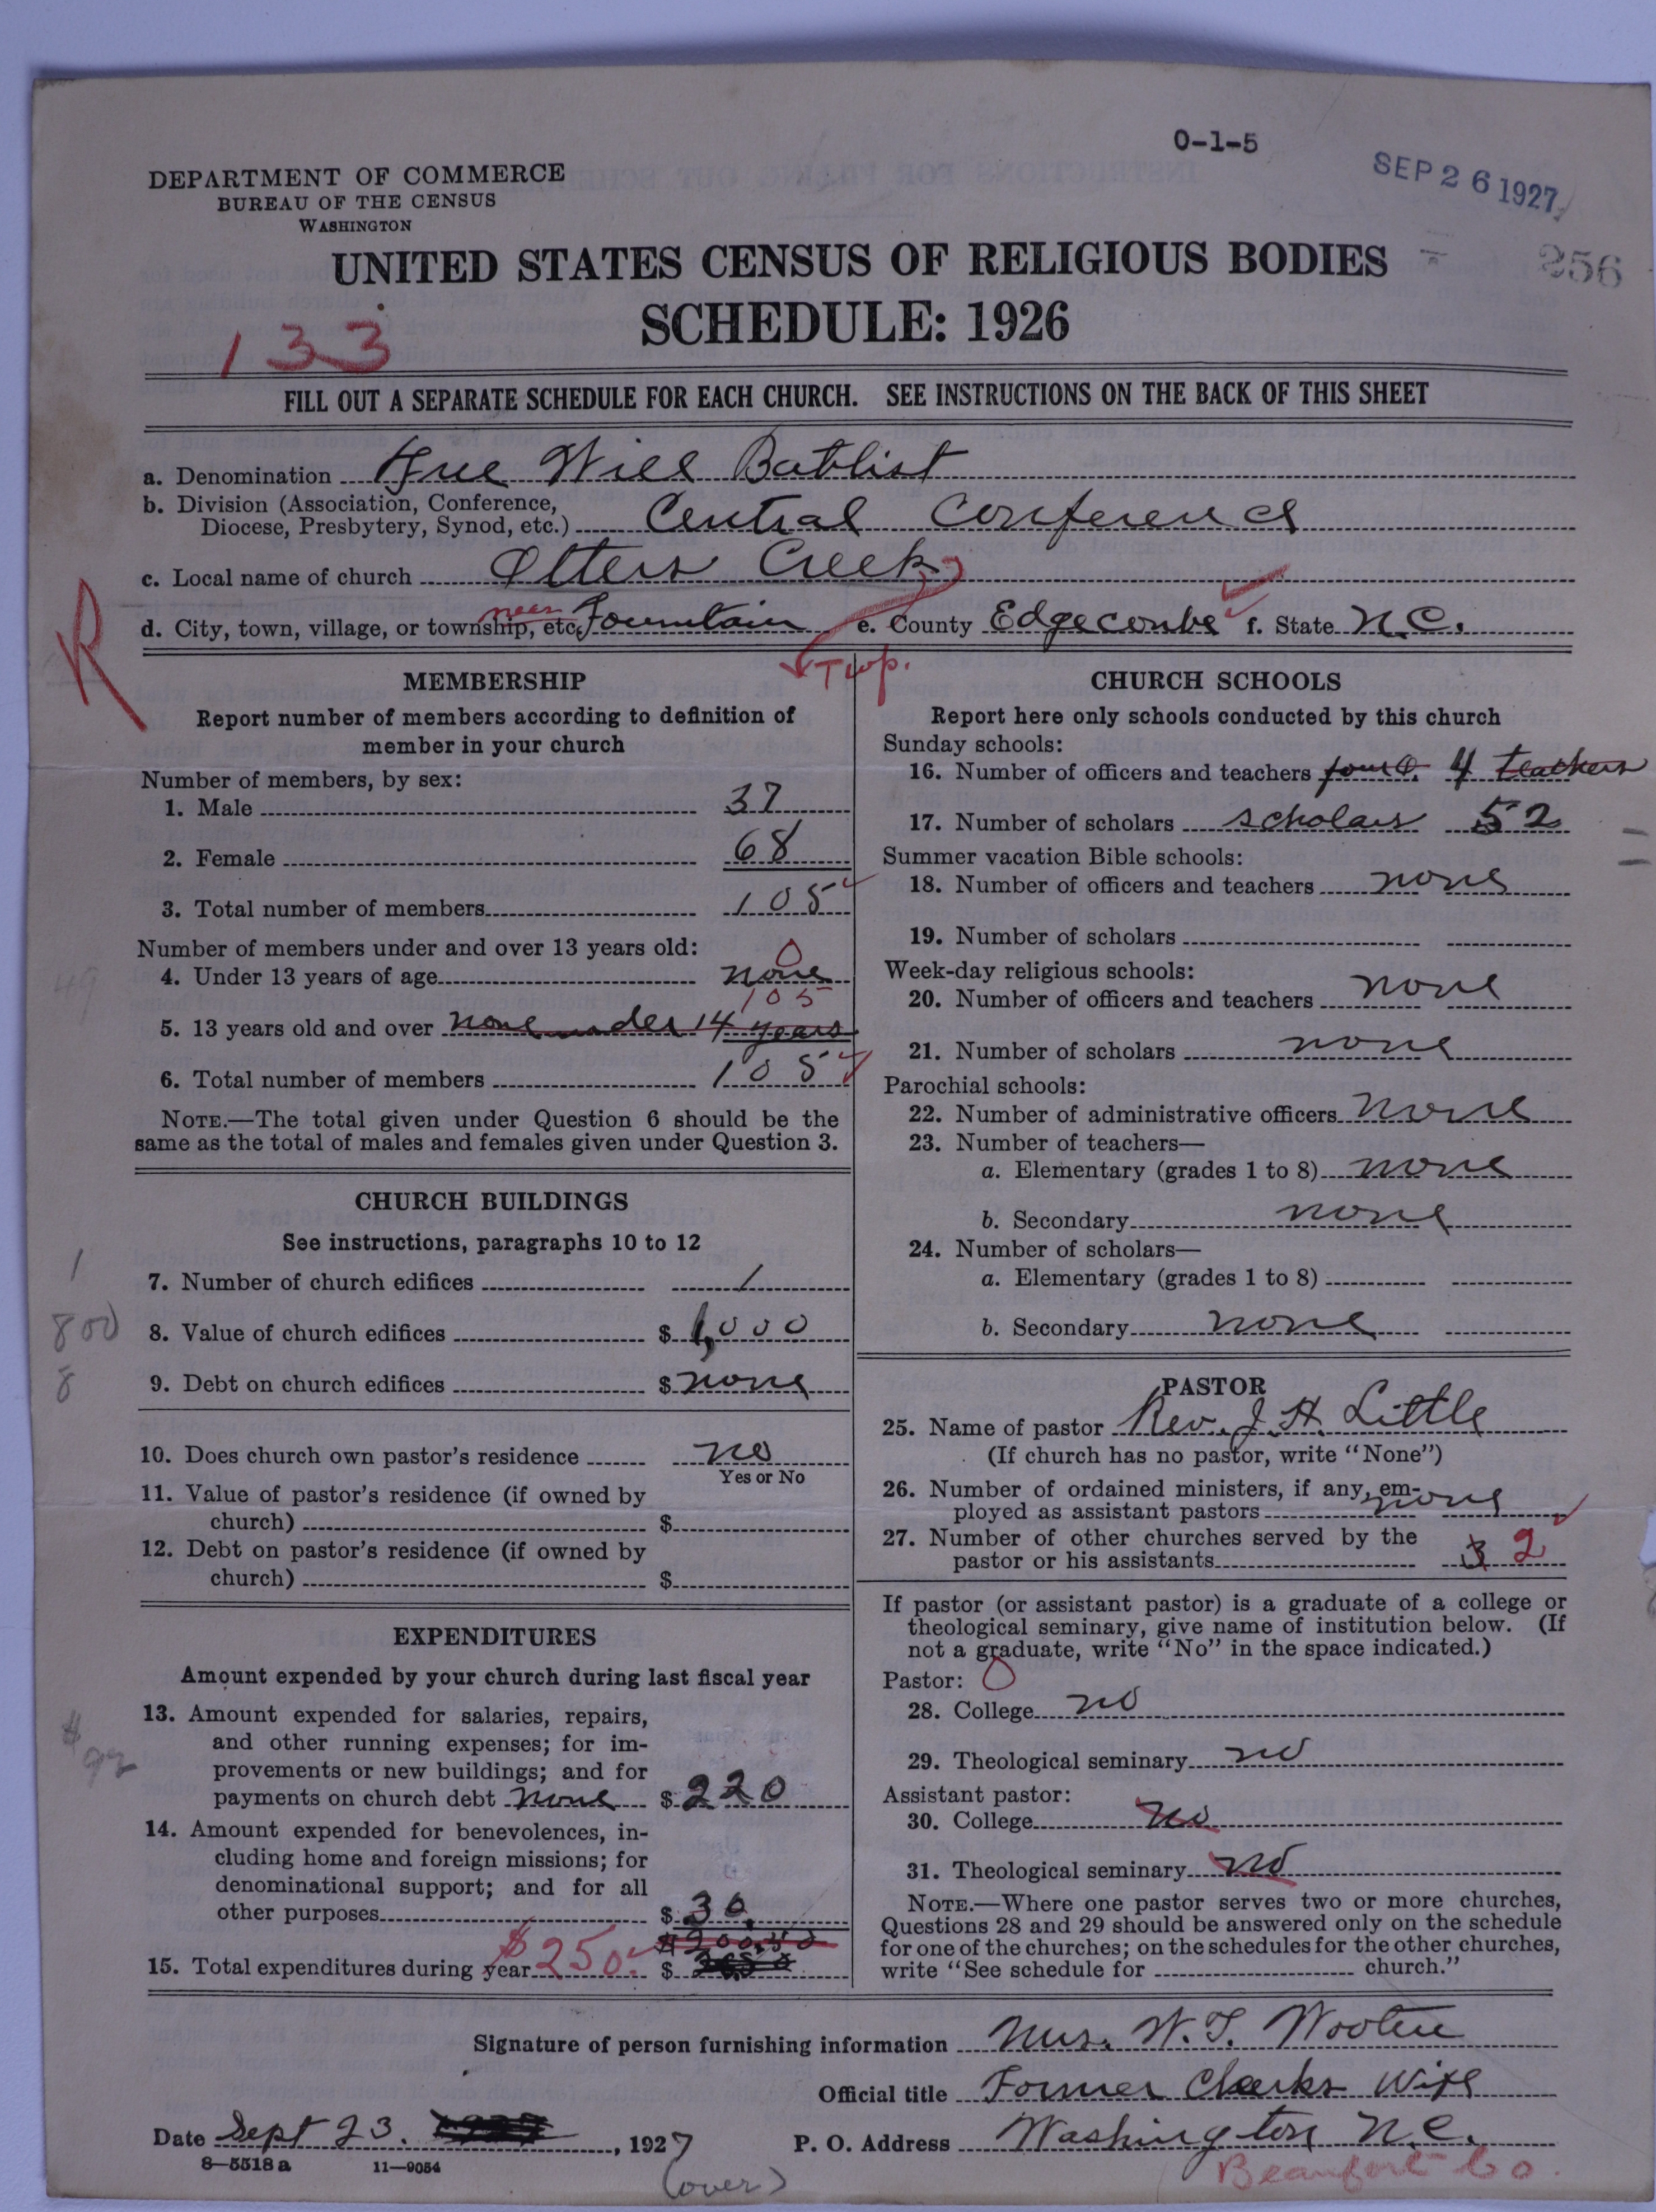 0-1-5
DEPARTMENT OF COMMERCE
BUREAU OF THE CENSUS
WASHINGTON
SEP 26 1927
256
UNITED STATES CENSUS OF RELIGIOUS BODIES
SCHEDULE: 1926
133
FILL OUT A SEPARATE SCHEDULE FOR EACH CHURCH. SEE INSTRUCTIONS ON THE BACK OF THIS SHEET
a. Denomination Free Will Babtist
b. Division (Association, Conference,
Diocese, Presbytery, Synod, etc.) Central Conference
c. Local name of church Otters Creek
d. City, town, village, or township, etc. near Fountain e. County Edgecombe f. State N.C.
R
Twp.
MEMBERSHIP
Report number of members according to definition of
member in your church
Number of members, by sex:
1. Male 37
2. Female 68
3. Total number of members 105
Number of members under and over 13 years old:
0
4. Under 13 years of age none
49
105
5. 13 years old and over none under 14 years
6. Total number of members 105
NOTE.—The total given under Question 6 should be the
same as the total of males and females given under Question 3.
CHURCH BUILDINGS
See instructions, paragraphs 10 to 12
1
7. Number of church edifices 1
800
8. Value of church edifices $ 1,000
8
9. Debt on church edifices $ none
10. Does church own pastor's residence no
Yes or No
11. Value of pastor's residence (if owned by
church) $
12. Debt on pastor's residence (if owned by
church) $
EXPENDITURES
Amount expended by your church during last fiscal year
13. Amount expended for salaries, repairs,
and other running expenses; for im-
provements or new buildings; and for
payments on church debt none $ 220
14. Amount expended for benevolences, in-
cluding home and foreign missions; for
denominational support; and for all
other purposes $ 30.
15. Total expenditures during year $250. $
CHURCH SCHOOLS
Report here only schools conducted by this church
Sunday schools:
16. Number of officers and teachers four 4 teachers
17. Number of scholars scholars 52
Summer vacation Bible schools:
18. Number of officers and teachers none
19. Number of scholars
Week-day religious schools:
20. Number of officers and teachers none
21. Number of scholars none
Parochial schools:
22. Number of administrative officers none
23. Number of teachers—
a. Elementary (grades 1 to 8) none
b. Secondary none
24. Number of scholars—
a. Elementary (grades 1 to 8)
b. Secondary none
PASTOR
25. Name of pastor Rev. J. H. Little
(If church has no pastor, write "None")
26. Number of ordained ministers, if any, em-
ployed as assistant pastors none
27. Number of other churches served by the
pastor or his assistants 3 2
If pastor (or assistant pastor) is a graduate of a college or
theological seminary, give name of institution below. (If
not a graduate, write "No" in the space indicated.)
Pastor: 0
28. College no
29. Theological seminary no
Assistant pastor:
30. College no
31. Theological seminary no
NOTE.—Where one pastor serves two or more churches,
Questions 28 and 29 should be answered only on the schedule
for one of the churches; on the schedules for the other churches,
write "See schedule for church."
Signature of person furnishing information Mrs. W. T. Wooten
Official title Former Clerks Wife
Date Sept 23. , 1927
P. O. Address Washington N.C.
8—5518 a 11—9054
(over)
Beaufort Co.